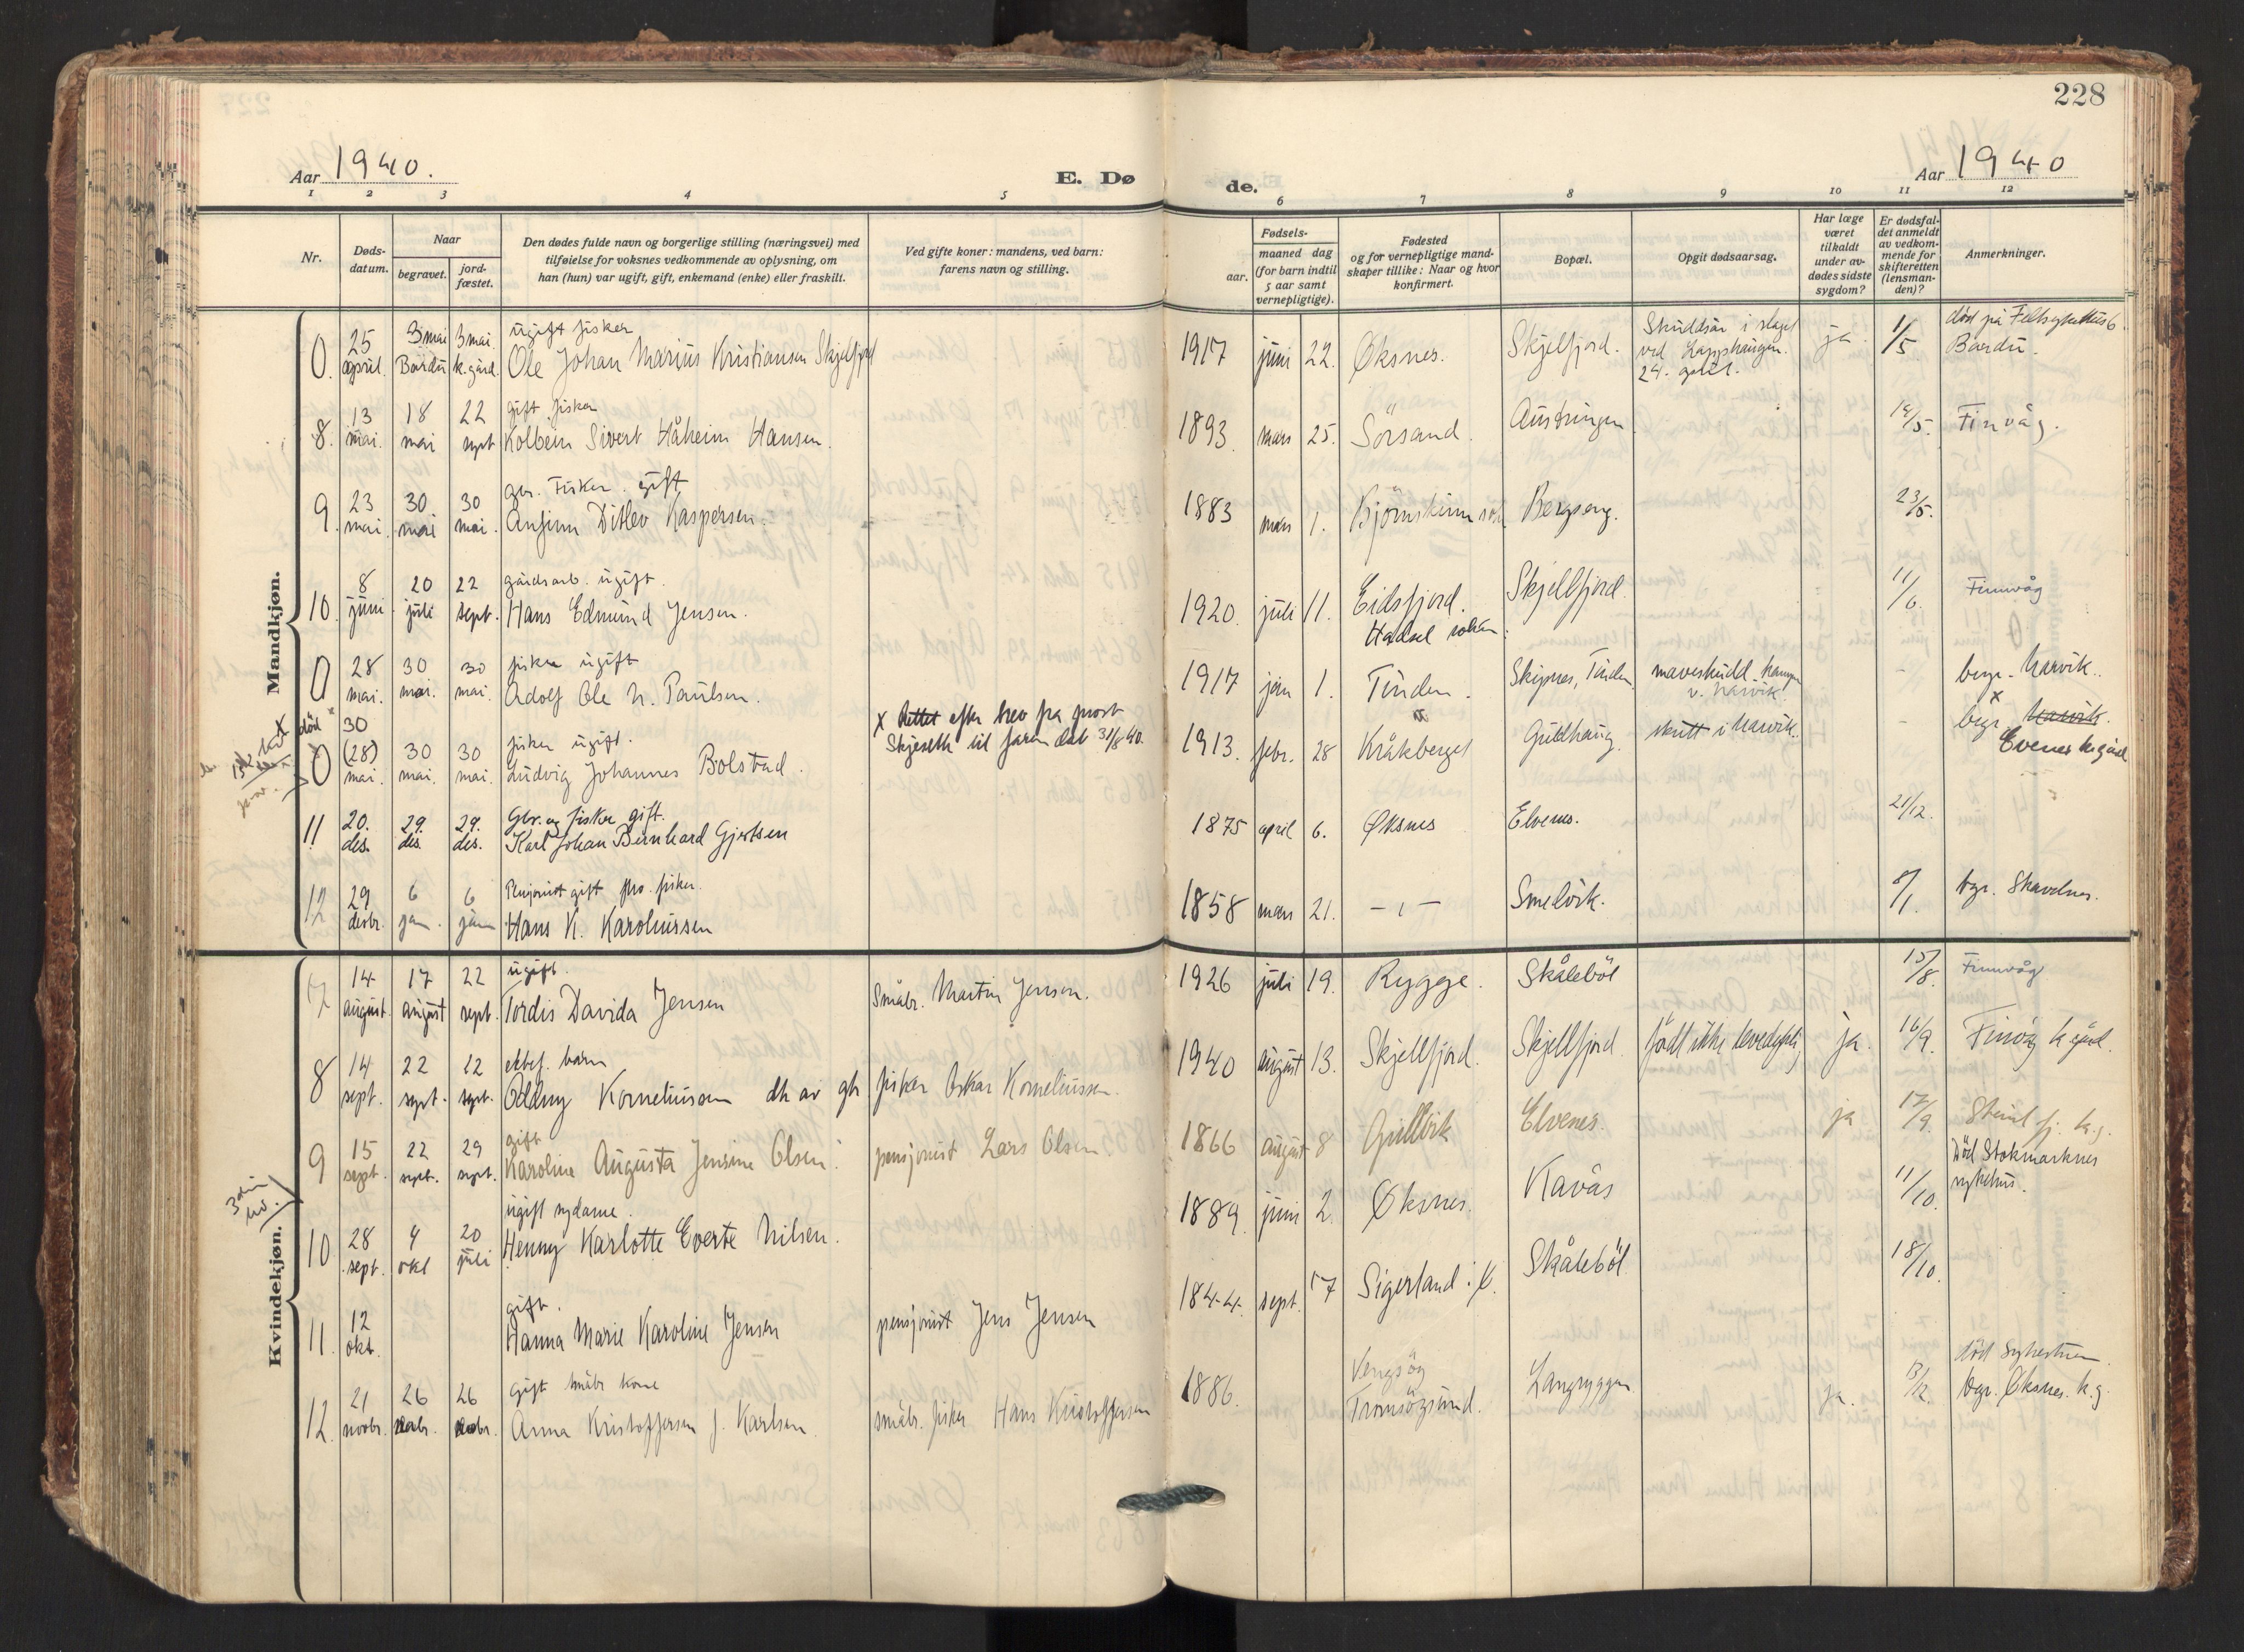 228
Aar 1940.
E. Dø
de.
Aar 1940
1 2 3 4 5 6 7 8 9 10 11 12
Nr.
Døds-
datum.
Naar
begravet.
jord-
fæstet.
Den dødes fulde navn og borgerlige stilling (næringsvei) med
tilføielse for voksnes vedkommende av oplysning, om
han (hun) var ugift, gift, enkemand (enke) eller fraskilt.
Ved gifte koner: mandens, ved barn:
farens navn og stilling.
Fødsels-
aar.
maaned dag
(for barn indtil
5 aar samt
vernepligtige).
Fødested
og for vernepligtige mand-
skaper tillike: Naar og hvor
konfirmert.
Bopæl.
Opgit dødsaarsag.
Har læge
været
tilkaldt
under av-
dødes sidste
sygdom?
Er dødsfal-
det anmeldt
av vedkom-
mende for
skifteretten
(lensman-
den)?
Anmerkninger.
Mandkjøn.
0. 25 april. 3 mai Bardu 3 mai. k.gård. ugift fisker
Ole Johan Marius Kristiansen Skjelfjord
1917 juni 22. Øksnes. Skjelfjord. Skuddsår i slaget
ved Lapphaugen.
24. april.
ja. 1/5 død på Feltsykehus 6
Bardu.
8. 13 mai. 18 mai 22 sept gift fisker
Kolbein Sivert Håheim Hansen.
1893. mars 25. Sörsand. Austringen 14/5. Finvåg.
9. 23 mai. 30 mai 30 mai. gbr. Fisker. gift
Anfinn Ditlev Kaspersen.
1883 mars 1. Björnskinn Bergseng. 23/5.
10. 8 juni 20 juli 22 sept. gårdsarb. ugift.
Hans Edmund Jensen.
1920. juli 11. Eidsfjord.
Hadsel sokn.
Skjellfjord. 11/6. Finnvåg
0 28 mai. 30 mai. 30 mai. fisker ugift
Adolf Ole N. Paulsen.
1917 jan 1. Tinden. Skipnes, Tinden. maveskudd
v. Narvik.
- begr. Narvik.
død x 30
0 (28) mai. 30 mai. 30 mai. fisker ugift.
Ludvig Johannes Bolstad.
x Rettet efter brev fra prost
Skjeseth til faren dat 31/8 40.
1913. febr. 28 Kråkberget Guldhaug. skutt i Narvik. - begr. Narvik.
x Evenes k.gård
11 20. des. 29. des. 29. des. Gbr. og fisker gift.
Karl Johan Bernhard Gjertsen
1875 april 6. Øksnes Elvenes. 21/12.
12 29 desbr. 6 jan. 6 jan Pensjonist gift fhv. fisker.
Hans K. Karoliussen
1858 mars 21. -"- Smelvik. 8/1. bgr. Skavelnes.
Kvindekjøn.
7 14 august. 17 august 22 sept. ugift.
Tordis Davida Jensen
Småbr. Martin Jensen.
1926 juli 19. Rygge. Skåleböl 15/8. Finnvåg
8 14 sept. 22 sept. 22 sept. ektef. barn
Oddny Korneliussen dh av gh
fisker Oskar Korneliussen.
1940 august 13. Skjellfjord. Skjellfjord. född ikke levedyktig ja. 16/9. Finvåg k.gård.
9 15 sept. 22 sept. 29 sept. gift
Karoline Augusta Jensine Olsen.
pensjonist Lars Olsen
1866 august 8 Gullvik Elvenes. ja 17/9.
10 28 sept. 4 okt 20 juli ugift sydame.
Henny Karlotte Everte Nilsen.
1889. juni 2. Øksnes. Kavås 11/10. Död Stokmarknes
sykehus.
11. 12 okt. gift.
Hanna Marie Karoline Jensen
pensjonist Jens Jensen
1844. sept. 17 Sigerland Skåleböl 18/10.
12. 21 novbr. 26 novbr. 26 novbr. gift småbr kone
Anna Kristoffersen f. Karlsen.
småbr. fisker Hans Kristoffersen
1886. Vengsöy
Tromsöysund.
Langryggen ja. 13/12. død sykestuen.
bgr. Øksnes k.g.